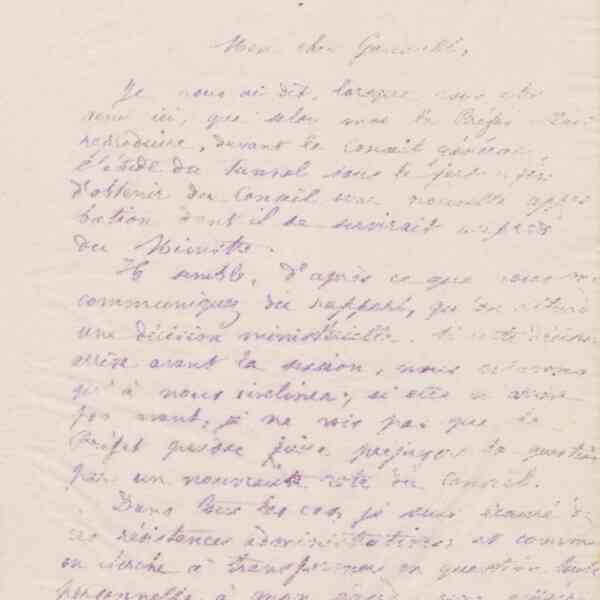 Mon cher
Je vous ai dit, lorsque vous
ici, que selon moi le Préfet
reproduire, devant le conseil général
l'étude du tunnel sous le
d'obtenir du Conseil une nouvelle appro
bation dont il se servirait auprès
du Ministre.
Il semble, d'après ce que vous me
communiquez du rapport, qu'on
une décision ministérielle. Si cette décision
arrive avant la session, nous n'aurons
qu'à nous incliner; si elle n'arrive
pas avant, je ne vois pas que le
Préfet puisse faire préjuger la question
par un nouveau vote du Conseil.
Dans tous les cas, je suis écœuré de
ces résistances administratives et comme
on cherche à transformer en question toute
personnelle à mon